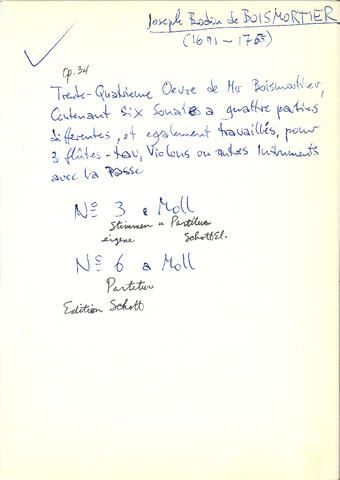 Joseph Bodin de BOISMORTIER
(1691-1755)
Op. 34
Trente-Quatrieme Oevre de Mr Boismortier,
Contenant Six Sonates a quattre parties
differentes, et egalement travaillés, pour
3 flûtes-trav, Violons ou autres Instruments
avec la Basse
No 3 e Moll
Stimmen u Partitur
eigene Schottel.
No 6 a Moll
Partitur
Edition Schott